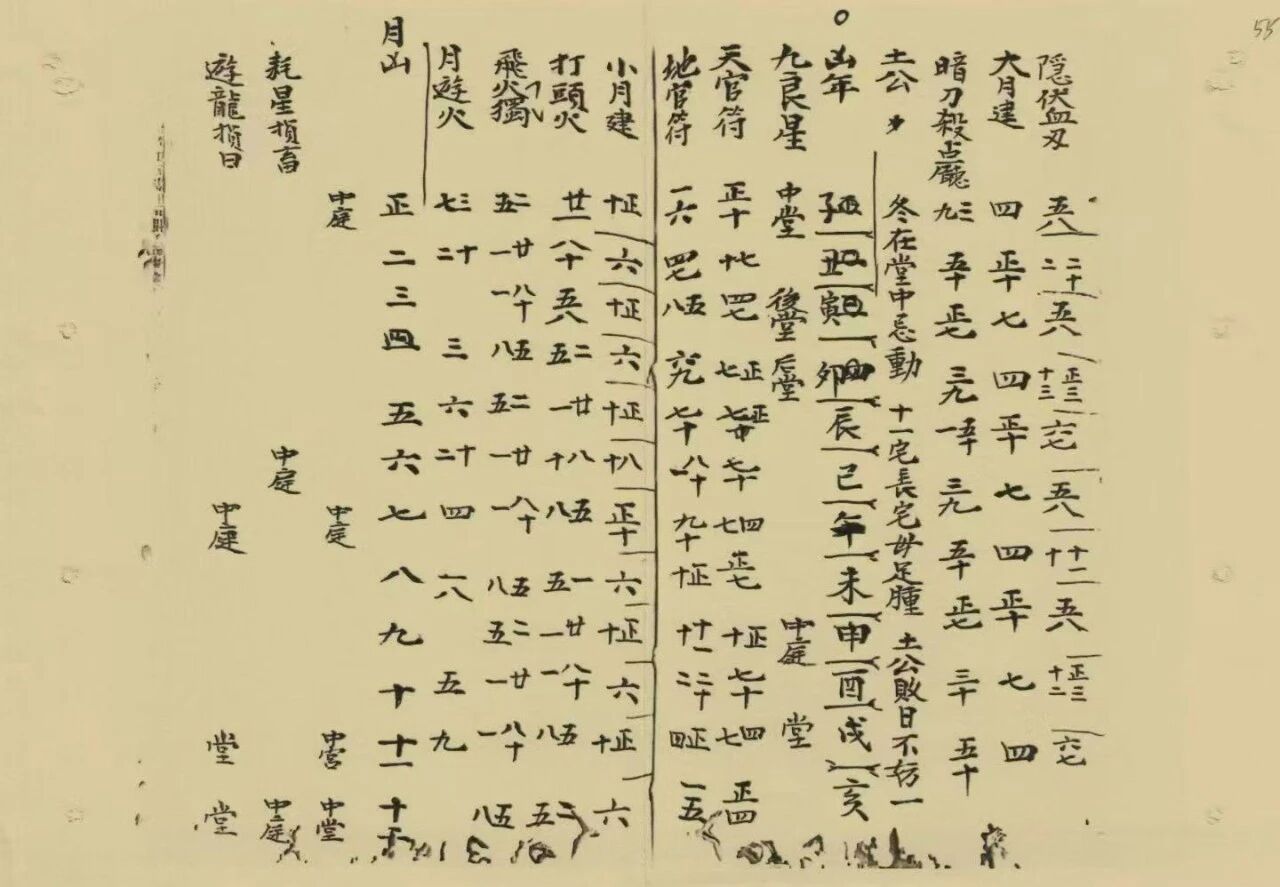 55
隠伏血刃 五八 二二十 五八 十三正三 六七 五八 十十二 五八 十二正三 六七
大月建 四 正十 七 四 正十 七 四 正十 七 四
暗刀殺占廳 三九 五十 正七 三九 五十一 三九 五十 正七 三十 五十
土公 冬在堂中忌動 十一宅長宅母足腫 土公敗日不妨一
凶年 子 丑 寅 卯 辰 巳 午 未 申 酉 戌 亥
九良星 中堂 後堂 后堂 中庭 堂
天官符 正十 七十 四七 正七 正七 七十 四七 正七 正十 七十 四七 正四
地官符 一六 四七 五八 六九 七十 八十一 九十 正十 十一 二十二 正四 一五
小月建 正十 六 正十 六 正十 八十 正十 六 正十 六 正十 六
打頭火 廿一 八十 五八 二五 廿一 八十 五八 一五 廿一 八十一 五八 二五
飛火獨 二五 廿一 八十一 五八 二五 廿一 八十一 五八 二五 廿一 八十一 五八
月遊火 三七 十二 三 六 十二 四 六八 五 九
月凶 正 二 三 四 五 六 七 八 九 十 十一 十二
中庭 中庭 中宮 中堂
耗星損畜 中庭 中庭
遊龍損日 中庭 堂 堂